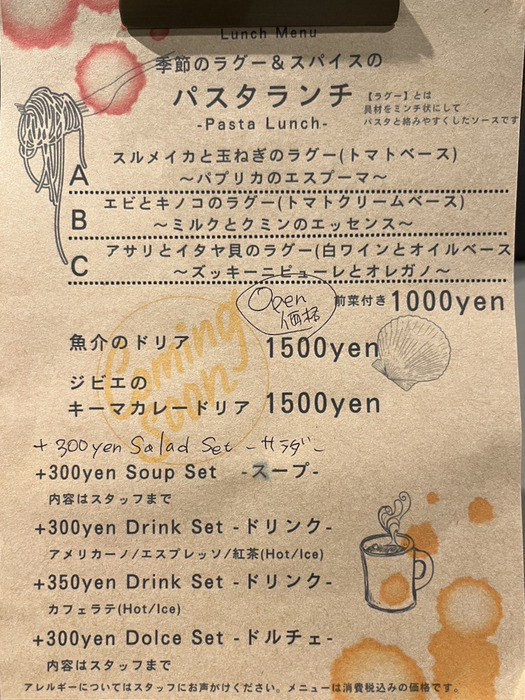 Lunch Menu
季節のラグー＆スパイスの
パスタランチ
-Pasta Lunch-
【ラグー】とは
具材をミンチ状にして
パスタと絡みやすくしたソースです
A スルメイカと玉ねぎのラグー(トマトベース)
〜パプリカのエスプーマ〜
B エビとキノコのラグー(トマトクリームベース)
〜ミルクとクミンのエッセンス〜
C アサリとイタヤ貝のラグー(白ワインとオイルベース
〜ズッキーニピューレとオレガノ〜
Open
価格
前菜付き 1000yen
Coming
soon
魚介のドリア 1500yen
ジビエの
キーマカレードリア 1500yen
+300yen Salad Set -サラダ-
+300yen Soup Set -スープ-
内容はスタッフまで
+300yen Drink Set -ドリンク-
アメリカーノ/エスプレッソ/紅茶(Hot/Ice)
+350yen Drink Set -ドリンク-
カフェラテ(Hot/Ice)
+300yen Dolce Set -ドルチェ-
内容はスタッフまで
アレルギーについてはスタッフにお声がけください。メニューは消費税込みの価格です。